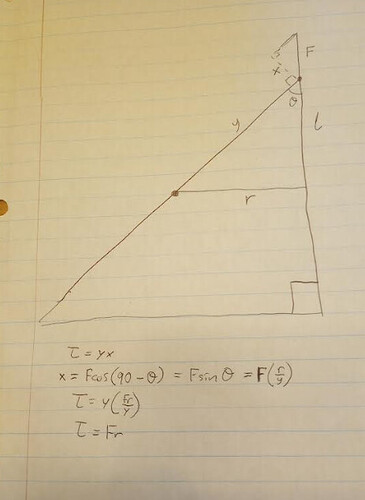 F
x
θ
y
l
r
τ = yx
x = Fcos(90 - θ) = Fsin θ = F(r/y)
τ = y(Fr/y)
τ = Fr